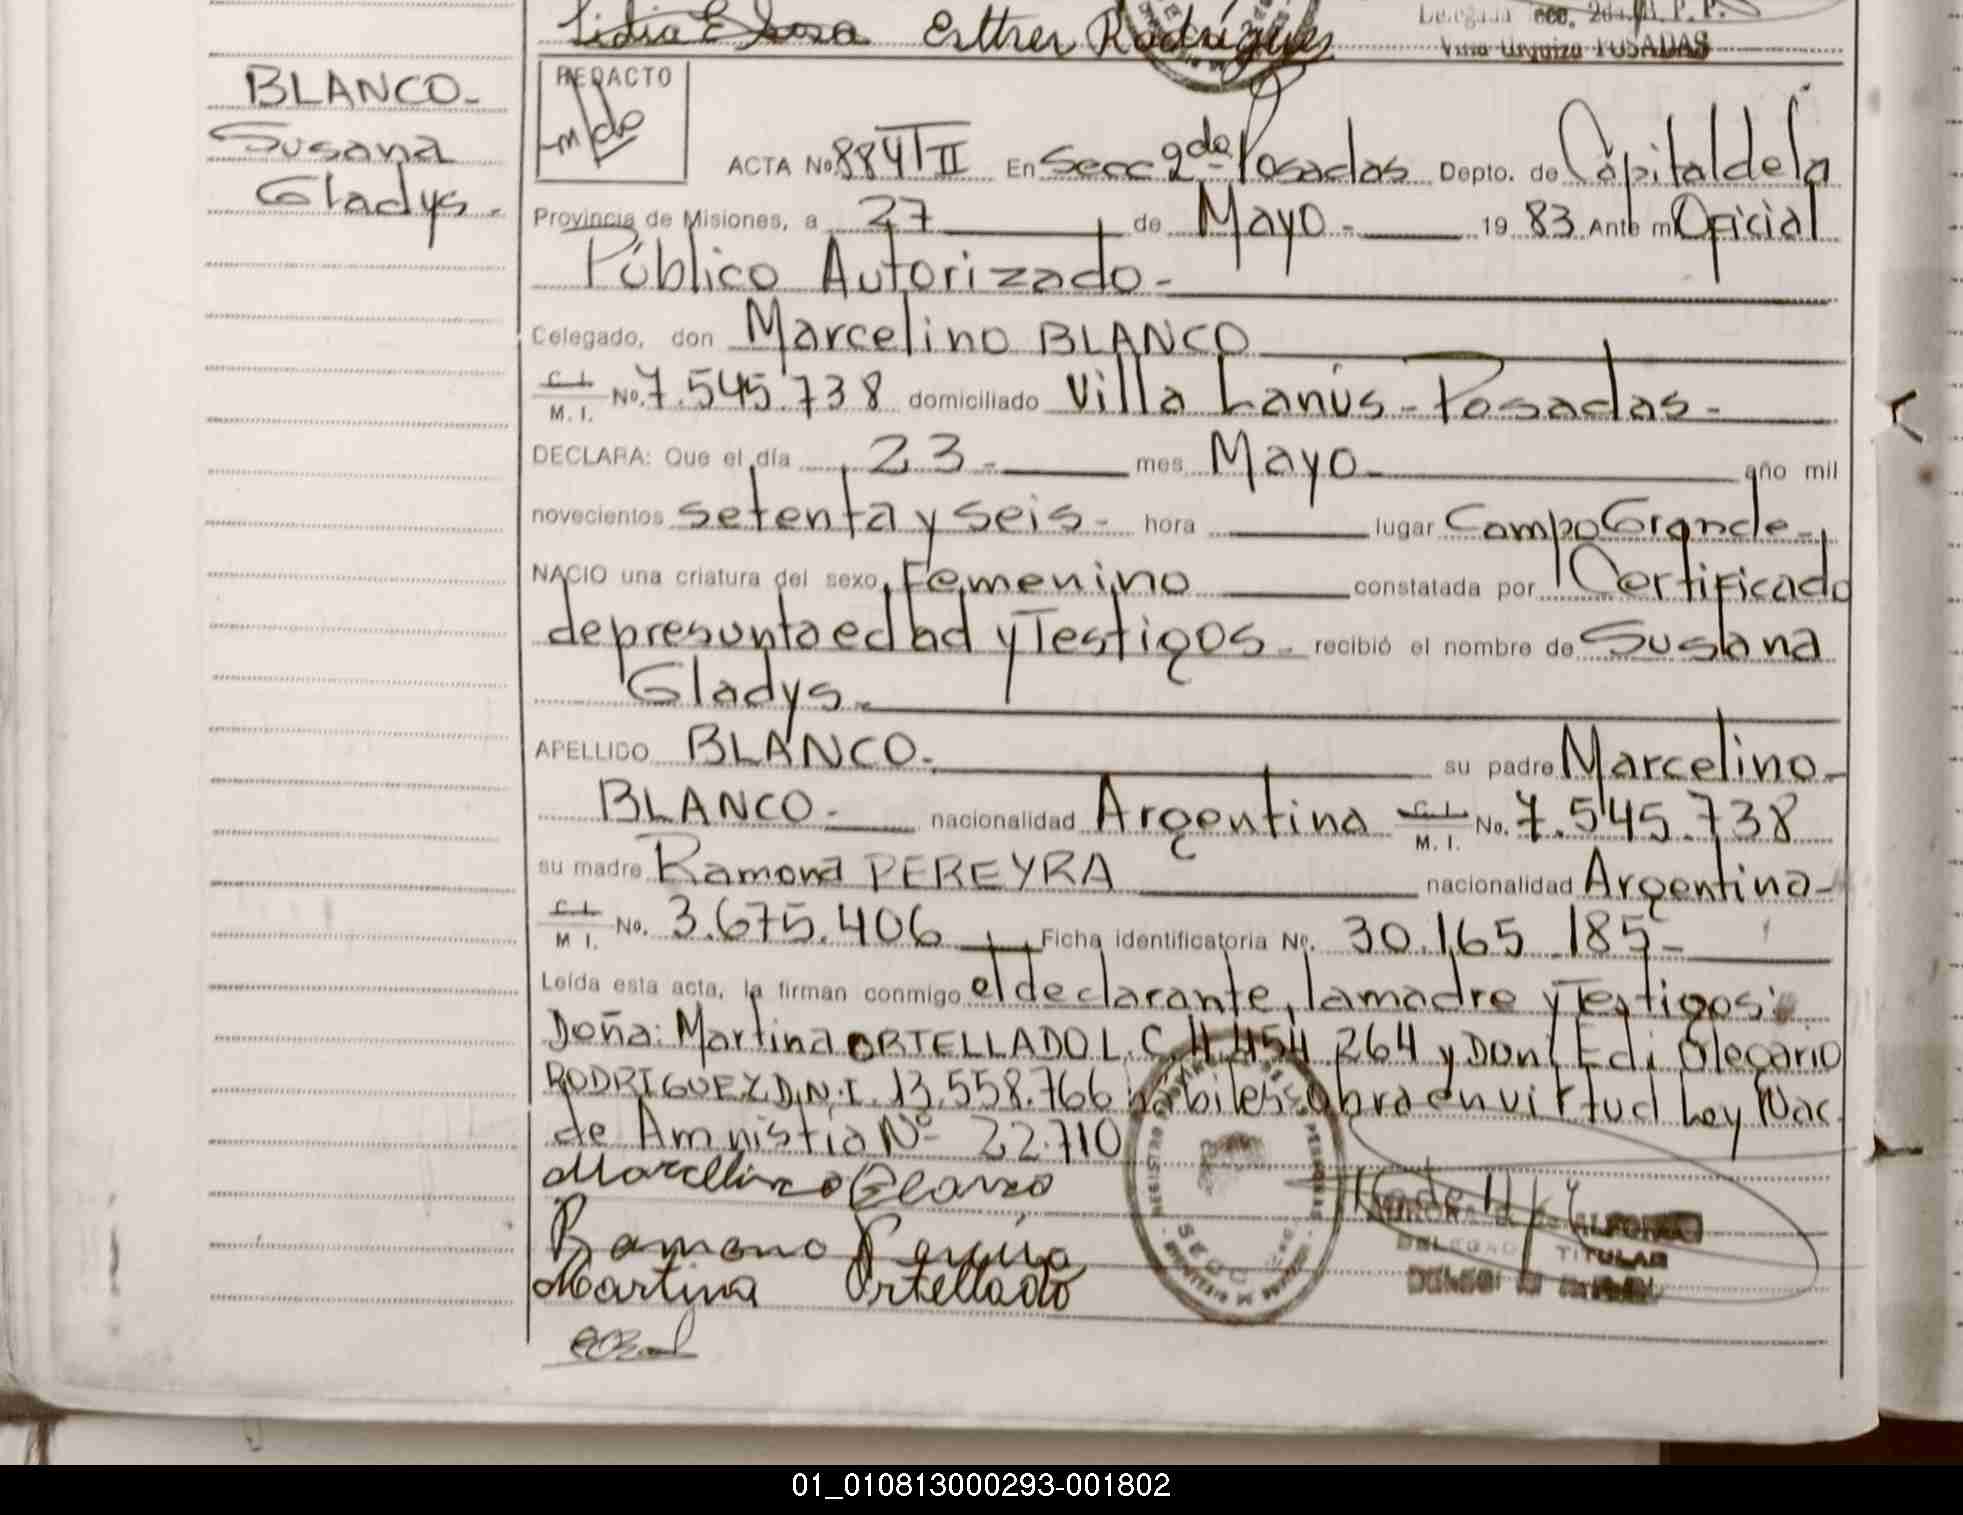 Lidia E Sosa Esther Rodríguez
Delegada Secc. 2da. R.P.P.
Villa Urquiza POSADAS
BLANCO-
Susana
Gladys-
REDACTO
ACTA No. 884 T II En Secc 2da Posadas Depto. de Capital de la
Provincia de Misiones, a 27 de Mayo- 19 83 Ante mi Oficial
Público Autorizado-
Celegado, don Marcelino BLANCO
C. I. / M. I. No. 7.545.738 domiciliado Villa Lanús-Posadas-
DECLARA: Que el día 23- mes Mayo- año mil
novecientos setenta y seis- hora lugar Campo Grande-
NACIO una criatura del sexo Femenino constatada por Certificado
de presunta edad y Testigos- recibió el nombre de Susana
Gladys-
APELLIDO BLANCO- su padre Marcelino-
BLANCO- nacionalidad Argentina C. I. / M. I. No. 7.545.738
su madre Ramona PEREYRA nacionalidad Argentina-
C. I. / M I. No. 3.675.406 Ficha identificatoria No. 30.165 185-
Leída esta acta, la firman conmigo el declarante, la madre y Testigos:
Doña: Martina ORTELLADO L.C. 4.454.264 y Don Edi Olegario
RODRIGUEZ D.N.I. 13.558.766 hábiles-Labra en virtud Ley Nac.
de Amnistia Nº 22.710
Marcelino Blanco
Ramona Pereira
Martina Ortellado
DELEGADA TITULAR
01_010813000293-001802